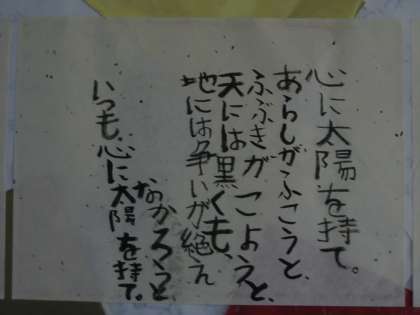 心に太陽を持て。
あらしがふこうと、
ふぶきがこようと、
天には黒くも、
地には争いが絶え
なかろうと、
いつも、心に太陽を持て。